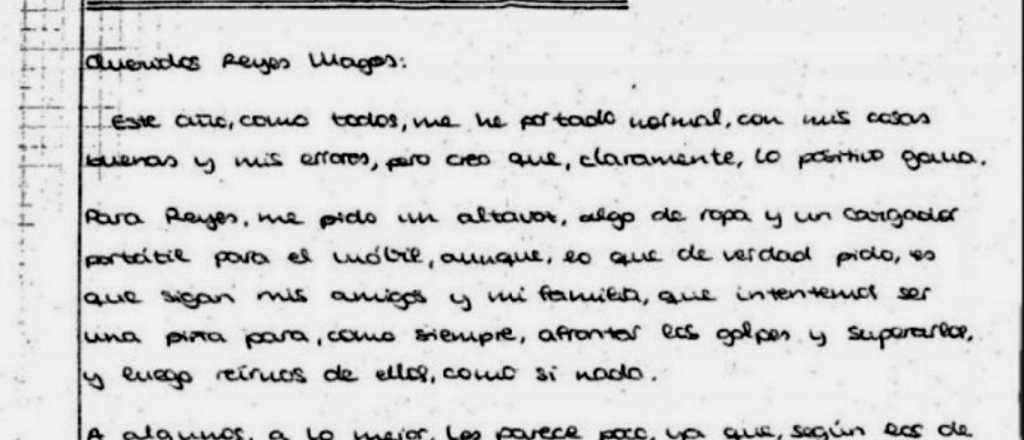 Queridos Reyes Magos:
Este año, como todos, me he portado normal, con mis cosas
buenas y mis errores, pero creo que, claramente, lo positivo gana.
Para Reyes, me pido un altavoz, algo de ropa y un cargador
portátil para el móvil, aunque, lo que de verdad pido, es
que sigan mis amigos y mi familia, que intentemos ser
una piña para, como siempre, afrontar los golpes y superarlos,
y luego reírnos de ellos, como si nada.
A algunos, a lo mejor, les parece poco, ya que, según los de